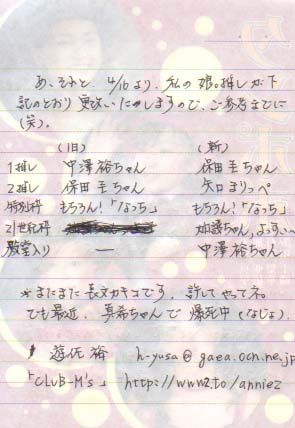 あ、それと 4/16より、私の娘。推しが下
記のとおり変更いたしますので、ご参考までに
(笑)。
(旧) (新)
1推し 中澤裕ちゃん 保田圭ちゃん
2推し 保田圭ちゃん 矢口まりっぺ
特別枠 もちろん!「なっち」 もちろん!「なっち」
21世紀枠 加護ちゃん、よっすぃ〜
殿堂入り ー 中澤裕ちゃん
*またまた長文カキコです。許してやってネ。
でも最近、真希ちゃんで爆死中(なじょ)。
遊佐 裕 h-yusa@gaea.ocn.ne.jp
「CLUB-M's」 http://www2.to/anniez